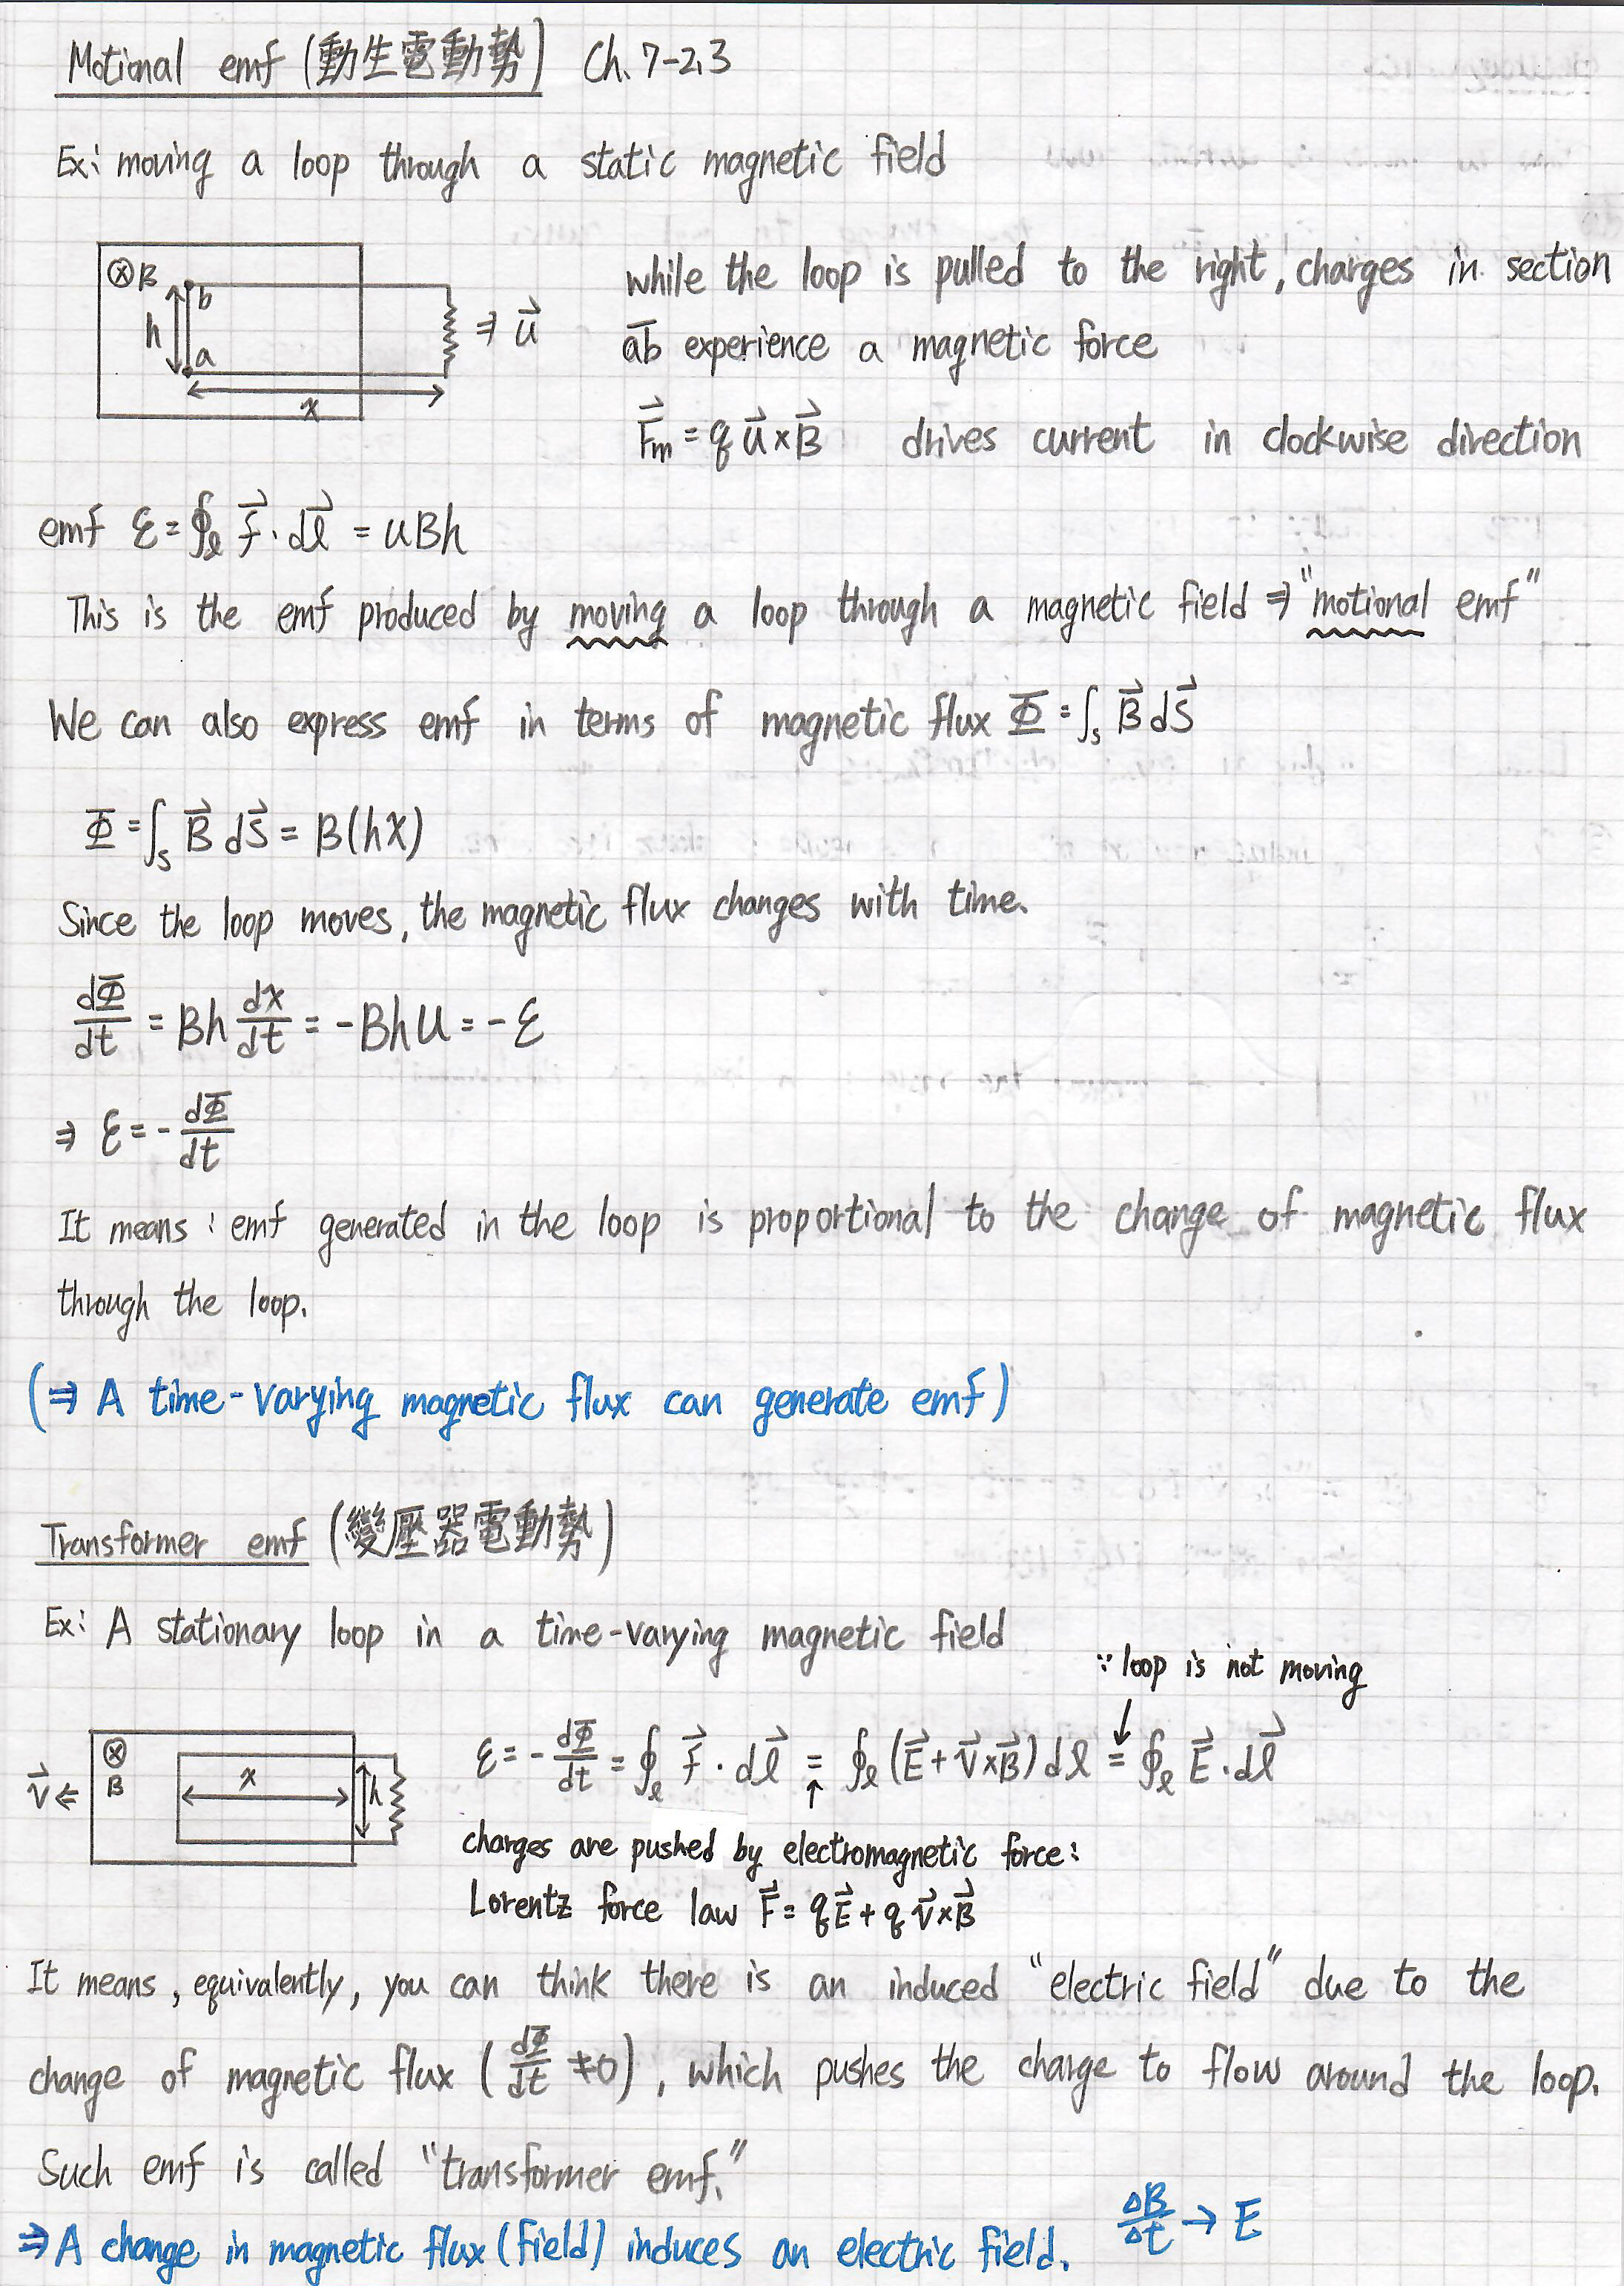 Motional emf (動生電動勢) Ch. 7-2,3
Ex: moving a loop through a static magnetic field
⊗B
b
h
a
x
⇒ u⃗
while the loop is pulled to the right, charges in section
a̅b̅ experience a magnetic force
F⃗m = q u⃗ × B⃗ drives current in clockwise direction
emf ℰ = ∮ℓ f⃗ · dℓ⃗ = uBh
This is the emf produced by moving a loop through a magnetic field ⇒ "motional emf"
We can also express emf in terms of magnetic flux Φ = ∫s B⃗ dS⃗
Φ = ∫s B⃗ dS⃗ = B(hx)
Since the loop moves, the magnetic flux changes with time.
dΦ/dt = Bh dx/dt = -Bhu = -ℰ
⇒ ℰ = - dΦ/dt
It means : emf generated in the loop is proportional to the change of magnetic flux
through the loop.
(⇒ A time-varying magnetic flux can generate emf)
Transformer emf (變壓器電動勢)
Ex: A stationary loop in a time-varying magnetic field
∵ loop is not moving
↓
v⃗ ⇐
⊗
B
x
h
ℰ = - dΦ/dt = ∮ℓ f⃗ · dℓ⃗ = ∮ℓ (E⃗ + v⃗ × B⃗) dℓ = ∮ℓ E⃗ · dℓ⃗
↑
charges are pushed by electromagnetic force:
Lorentz force law F⃗ = qE⃗ + q v⃗ × B⃗
It means, equivalently, you can think there is an induced "electric field" due to the
change of magnetic flux (dΦ/dt ≠ 0), which pushes the charge to flow around the loop.
Such emf is called "transformer emf."
⇒ A change in magnetic flux (field) induces an electric field. ΔB/Δt → E